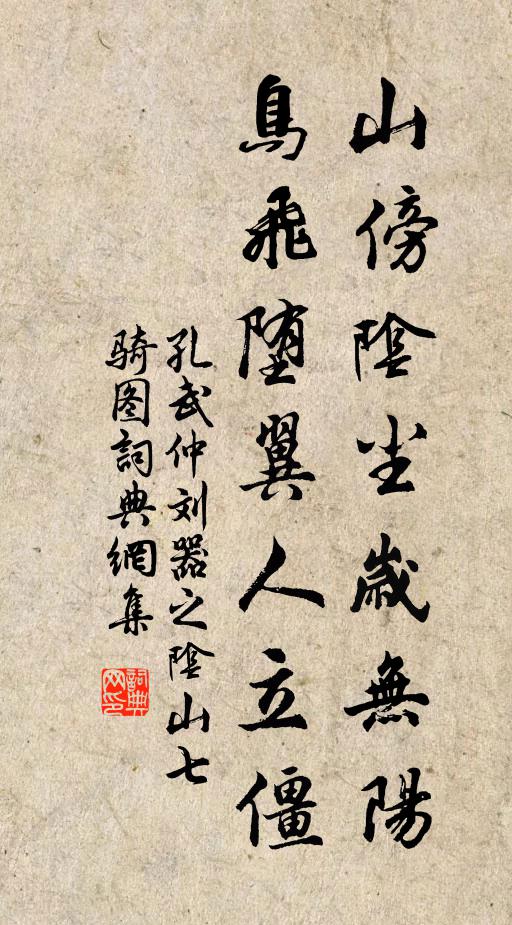 山傍陰坐歲無陽
鳥飛墮翼人立僵
孔武仲刘器之陰山七
骑图詞典網集
詞典
网印